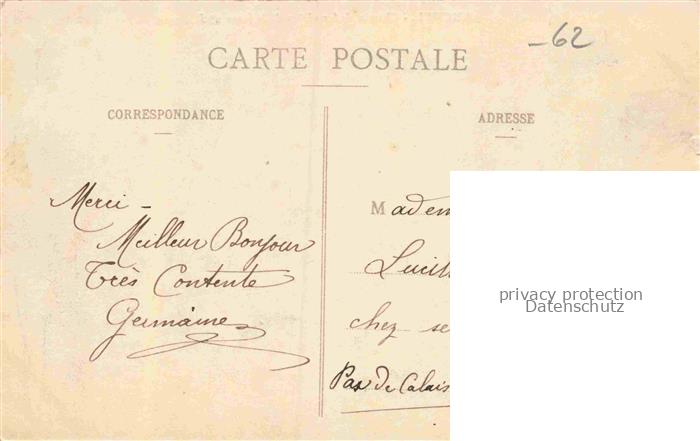 -62
CARTE POSTALE
CORRESPONDANCE
ADRESSE
Merci -
Meilleur Bonjour
Très Contente
Germaine
Madem
Lucill
chez se
Pas de Calais
privacy protection
Datenschutz